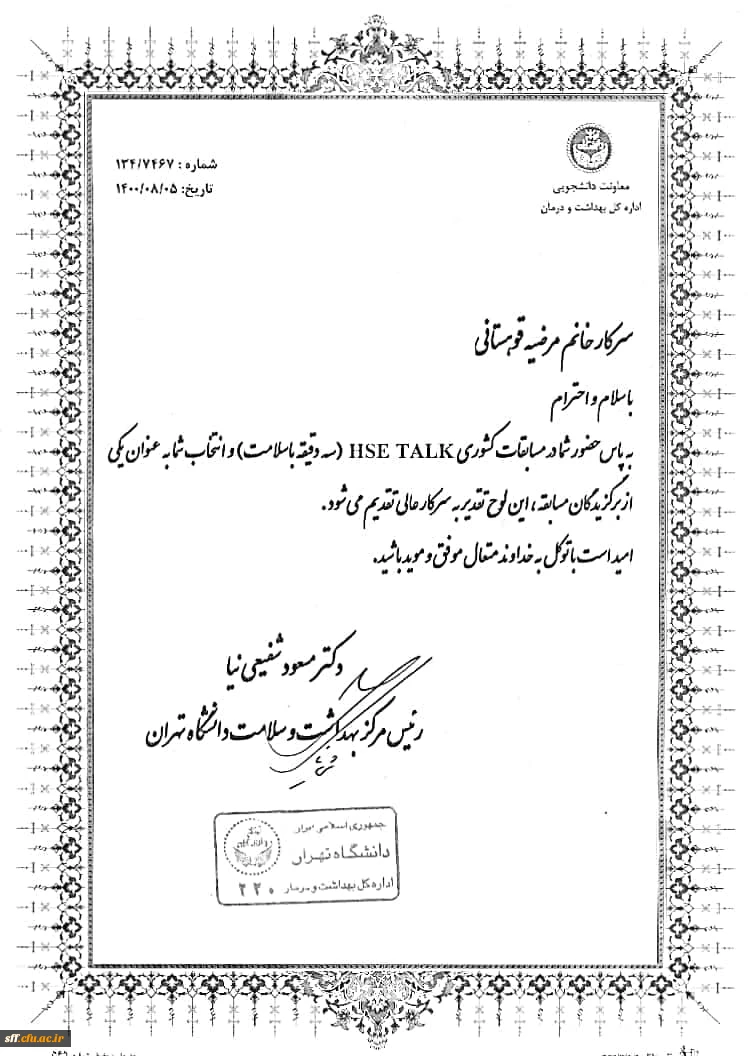 معاونت دانشجویی
اداره کل بهداشت و درمان
شماره : ۱۳۴/۷۴۶۷
تاریخ: ۱۴۰۰/۰۸/۰۵
سرکار خانم مرضیه قوهستانی
با سلام و احترام
به پاس حضور شما در مسابقات کشوری HSE TALK (سه دقیقه با سلامت) و انتخاب شما به عنوان یکی
از برگزیدگان مسابقه، این لوح تقدیر به سرکار عالی تقدیم می شود.
امید است با توکل به خداوند متعال موفق و موید باشید.
دکتر مسعود شفیعی نیا
رئیس مرکز بهداشت و سلامت دانشگاه تهران
جمهوری اسلامی ایران
دانشگاه تهران
اداره کل بهداشت و درمان ۲۲۰
sff.cfu.ac.ir